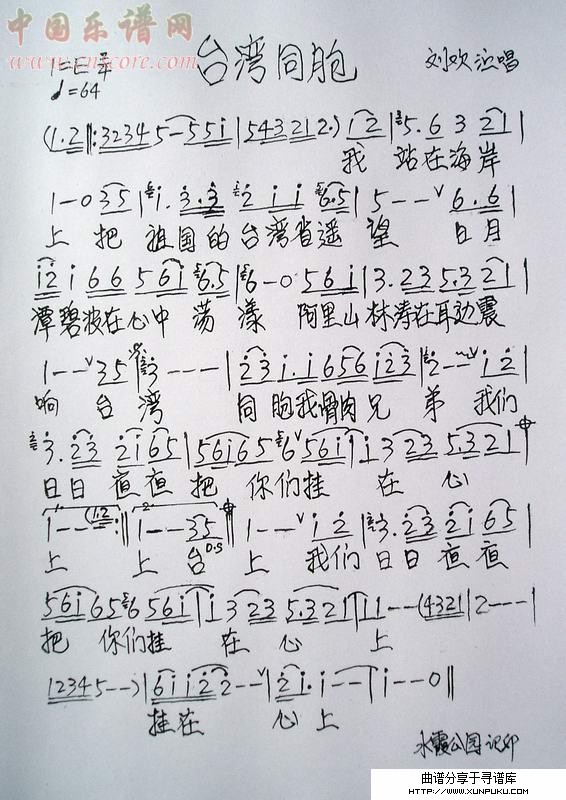 中国乐谱网
www.cnscore.com
台湾同胞
刘欢演唱
1=E 4/4
♩=64
(1.2‖:3234 5-55i|543212.) i2|5.6 3 21|
我 站在海岸
1-0 35|i. 3.3 2 i i 6.5|5--ᵛ6.6|
上 把 祖国的台湾省遥 望 日月
i2 i 66 5 6i 6.5|6-0 56i|3.23 5.3 21|
潭碧波在心中 荡 漾 阿里山林涛在耳边震
1--ᵛ35|3---|23 i.i 656 i23|2--ᵛi2|
响 台 湾 同胞我骨肉兄 弟 我们
3.23 2i65|56i65 6ᵛ56i|i3 23 5.321|
日日 夜夜 把 你们挂 在 心
1--(1.2:‖1--35‖1--ᵛi2|3.23 2i 65|
上 上 台 上 我们日日夜夜
D.S
56i656 56i|i3 23 5.321|11--(4321|2---|
把 你们挂 在 心 上
12345--)|6ii22-ᵛ|2i.i--|i--0‖
挂在 心上
水霞公园记印
曲谱分享于寻谱库
HTTP://WWW.XUNPUKU.COM